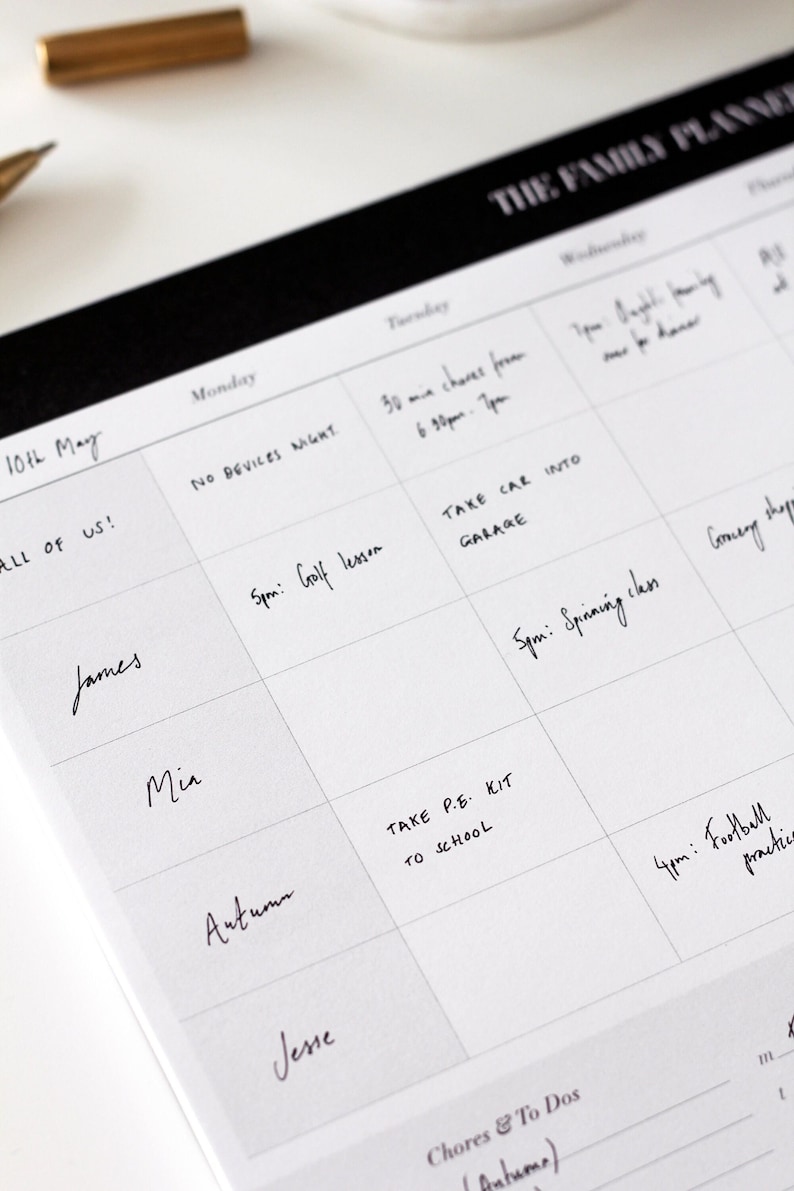 THE FAMILY PLANNER
10th May
Monday
Tuesday
Wednesday
Thursd
ALL OF US!
NO DEVICES NIGHT
30 min chores from
6.30pm - 7pm
7pm: family
over for dinner
All
at
James
5pm: Golf lesson
TAKE CAR INTO
GARAGE
Mia
5pm: Spinning class
Grocery shopp
Autumn
TAKE P.E. KIT
TO SCHOOL
Jesse
4pm: Football
practice
Chores & To Dos
(Autumn)
m
t